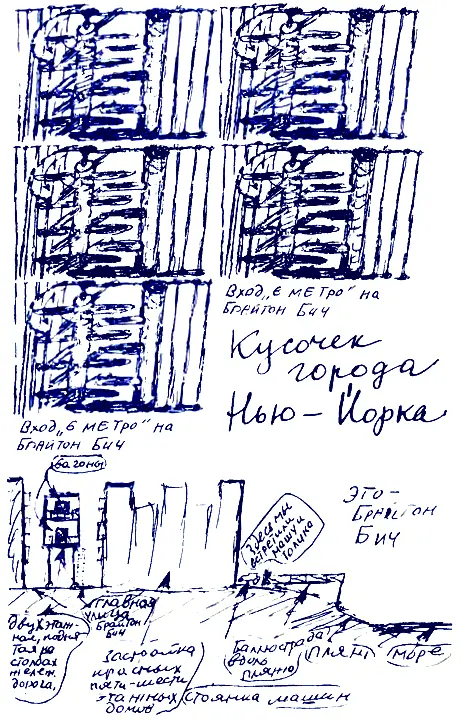 Вход „в метро" на
Брайтон Бич
Вход „в метро" на
Брайтон Бич
Кусочек
города
Нью-Йорка
вагоны
Это-
Брайтон
Бич
Здесь мы
встретили
Машу и
Толика
Двухэтаж-
ная, подня
тая на
столбах
железн.
дорога.
Главная
улица
Брайтон
Бич
Застройка
красных
пяти-шести
этажных
домов
Стоянка машин
Балюстрада
вдоль
пляжа
пляж
море